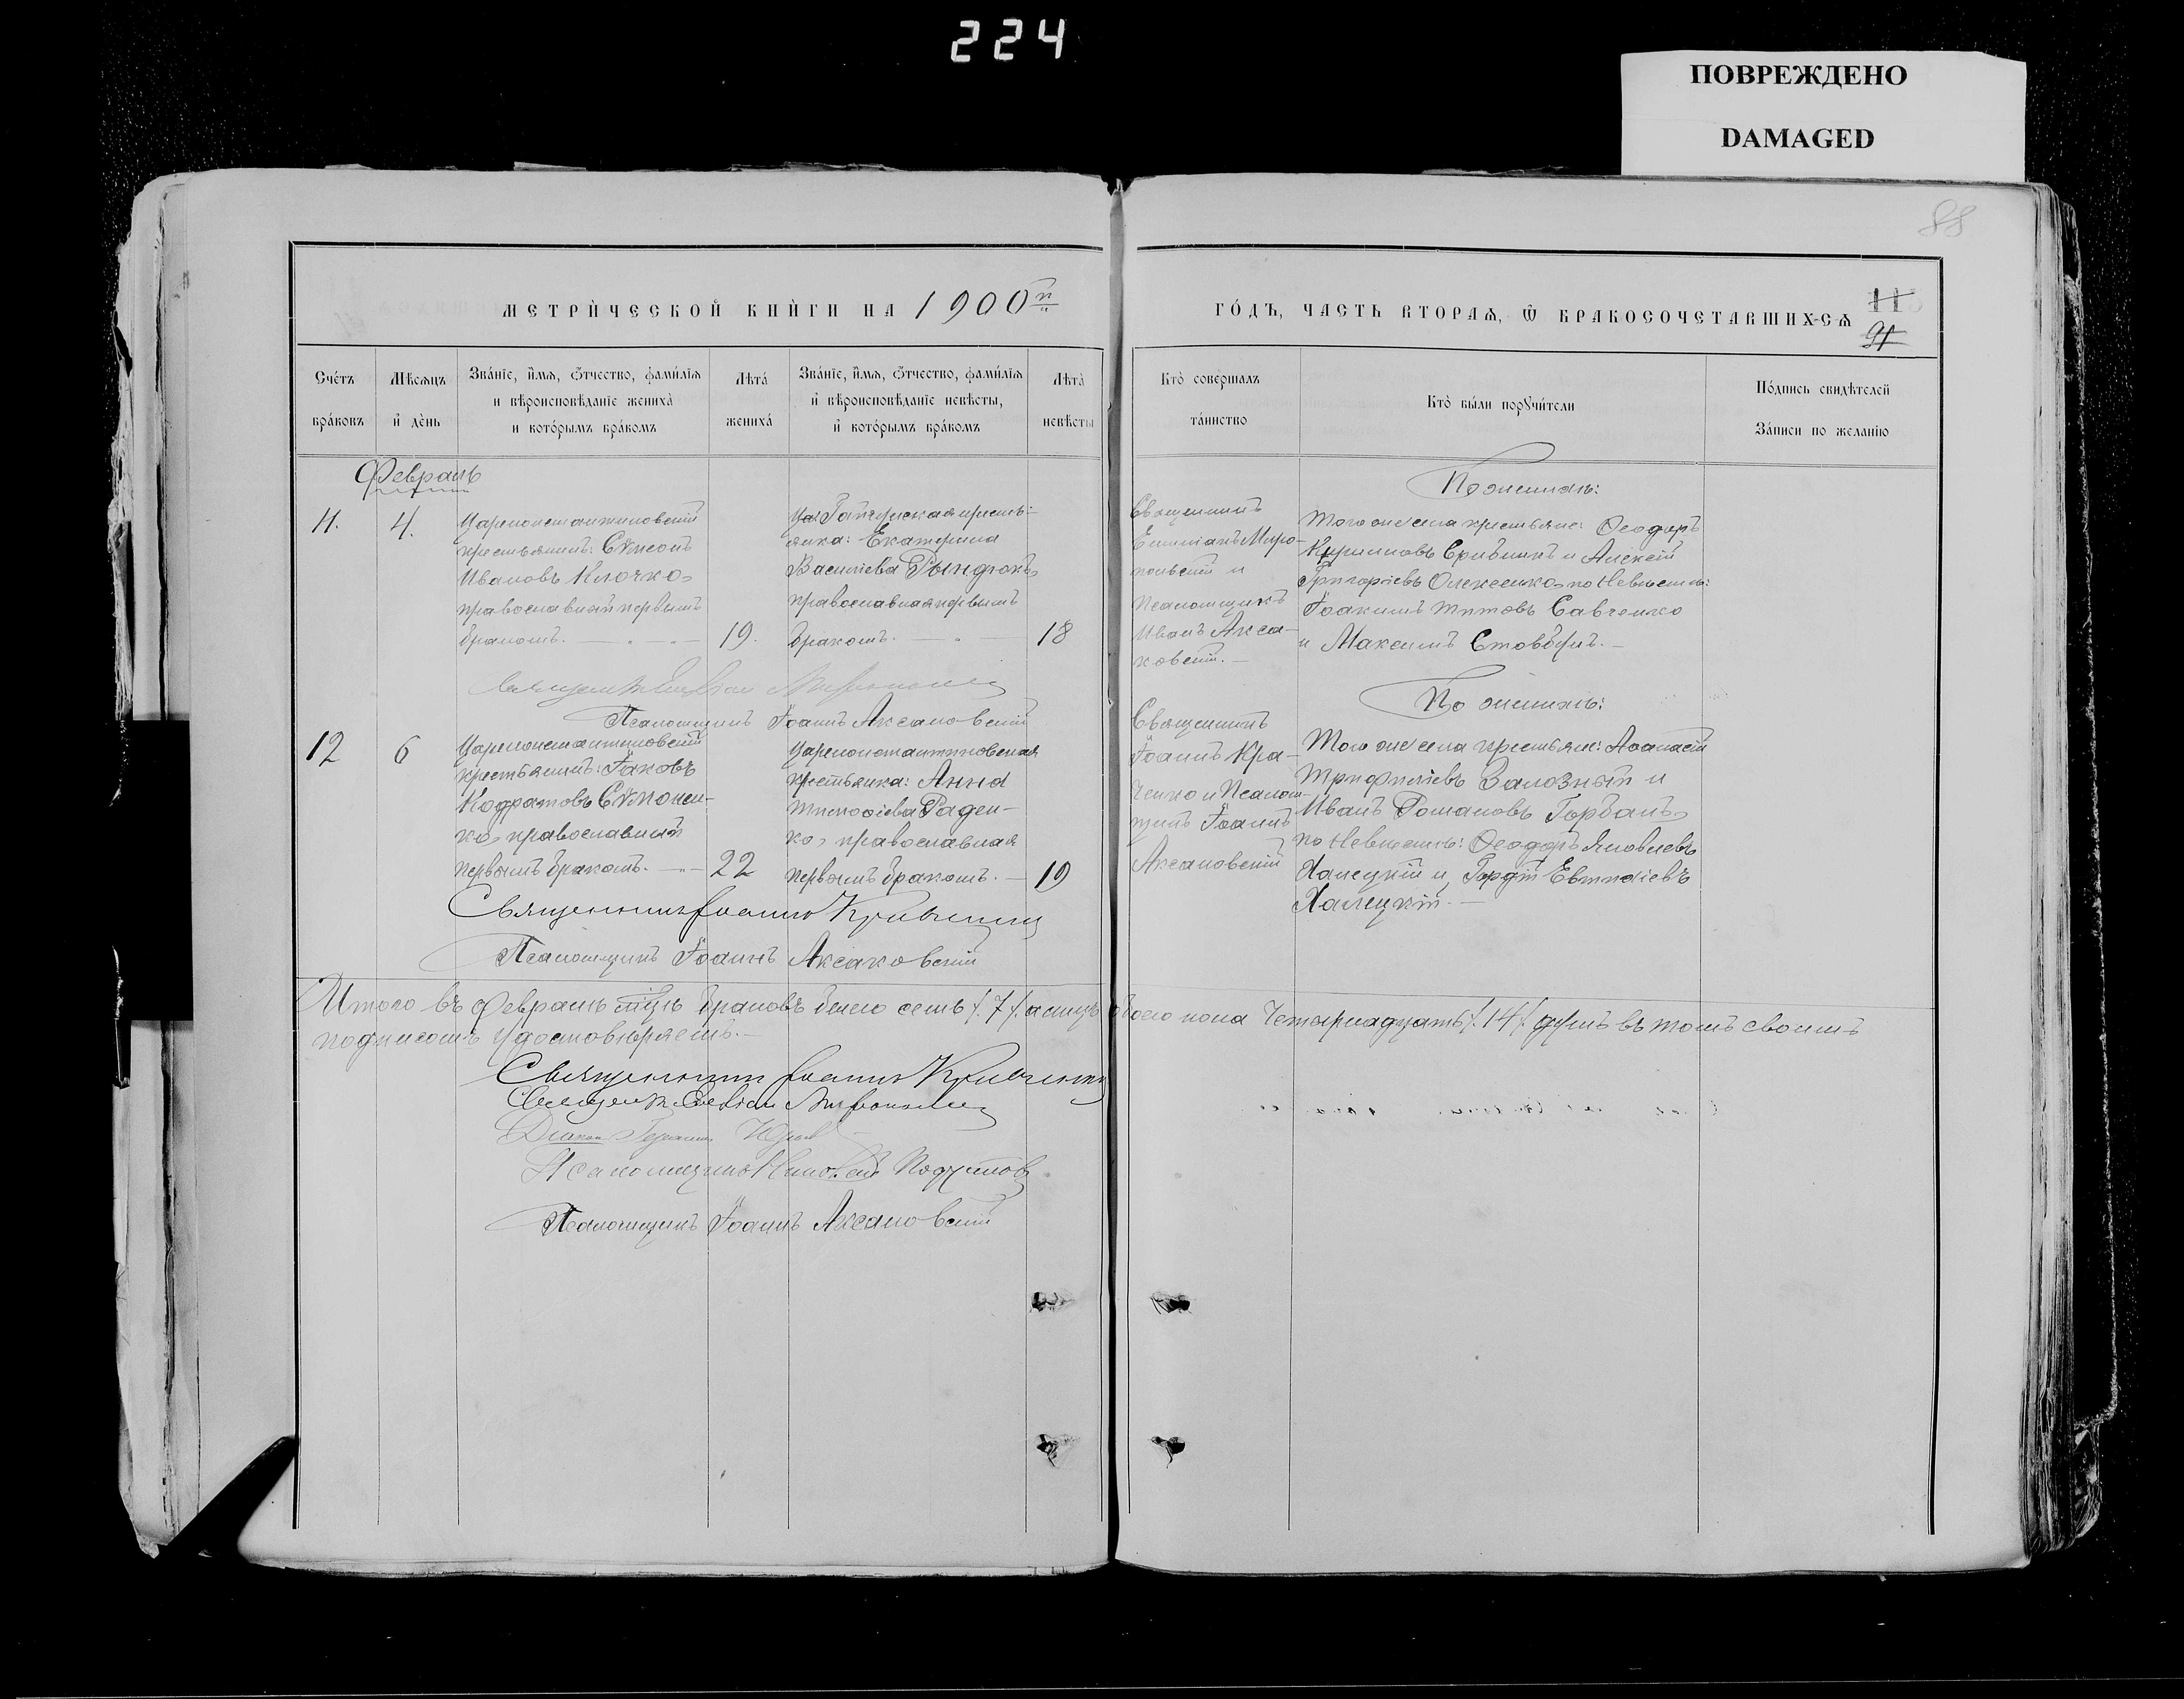 224
ПОВРЕЖДЕНО
DAMAGED
88
МЕТРИ́ЧЕСКОЙ КНИ́ГИ НА 1900й
ГО́ДЪ, ЧАСТЬ ВТОРАѦ, Ѿ БРАКОСОЧЕТАВШИХСѦ
11
91
Сче́тъ бра́ковъ
Мѣсѧцъ и де́нь
Зва́нїе, и́мѧ, ѻ́тчество, фами́лїѧ и вѣроисповѣданїе жениха̀ и кото́рымъ бра́комъ
Лѣта̀ жениха̀
Зва́нїе, и́мѧ, ѻ́тчество, фами́лїѧ и вѣроисповѣданїе невѣсты, и кото́рымъ бра́комъ
Лѣта̀ невѣсты
Кто̀ соверша́лъ та́инство
Кто̀ бы́ли порꙋчи́тели
По́дпись свидѣтелей За́писи по желанїю
Февраль
11.
4.
Царпоконстантиновскій
крестьянинъ: Сѵмеонъ
Ивановъ Клочко,
православный первымъ
бракомъ.
19.
Гайчурская кресть-
янка: Екатерина
Василіева Рындюкъ,
православная первымъ
бракомъ.
18
Священникъ
Емиліанъ Миро-
польскій и
Псаломщикъ
Иванъ Акса-
ковскій.
По женихѣ:
Того же села крестьяне: Ѳеодоръ
Кирилловъ Срибникъ и Алексій
Григоріевъ Олексенко, по Невѣстѣ:
Іоакимъ Титовъ Савченко
и Максимъ Стовбуръ.
Псаломщикъ Іоаннъ Аксаковскій
12
6
Цареконстантиновскій
крестьянинъ: Іаковъ
Кодратовъ Сѵмонен-
ко, православный
первымъ бракомъ.
22
Цареконстантиновская
крестьянка: Анна
Тимоѳіева Раден-
ко, православная
первымъ бракомъ.
19
Священникъ
Іоаннъ Кра-
ченко и Псалом-
щикъ Іоаннъ
Аксаковскій
По женихѣ:
Того же села крестьяне: Аѳанасій
Трифиліевъ Залозный и
Иванъ Романовъ Горбань,
по Невѣстѣ: Ѳеодоръ Яковлевъ
Халецкій и Гордій Евтихіевъ
Халецкій.
Священникъ Іоаннъ
Псаломщикъ Іоаннъ Аксаковскій
Итого въ Февралѣ мѣсяцѣ браковъ было семь /7/. а лицъ обоего пола Четырнадцать /14/ душъ въ томъ своимъ
подписомъ удостовѣряемъ.
Священникъ Іоаннъ
Діаконъ
Псаломщикъ
Псаломщикъ Іоаннъ Аксаковскій